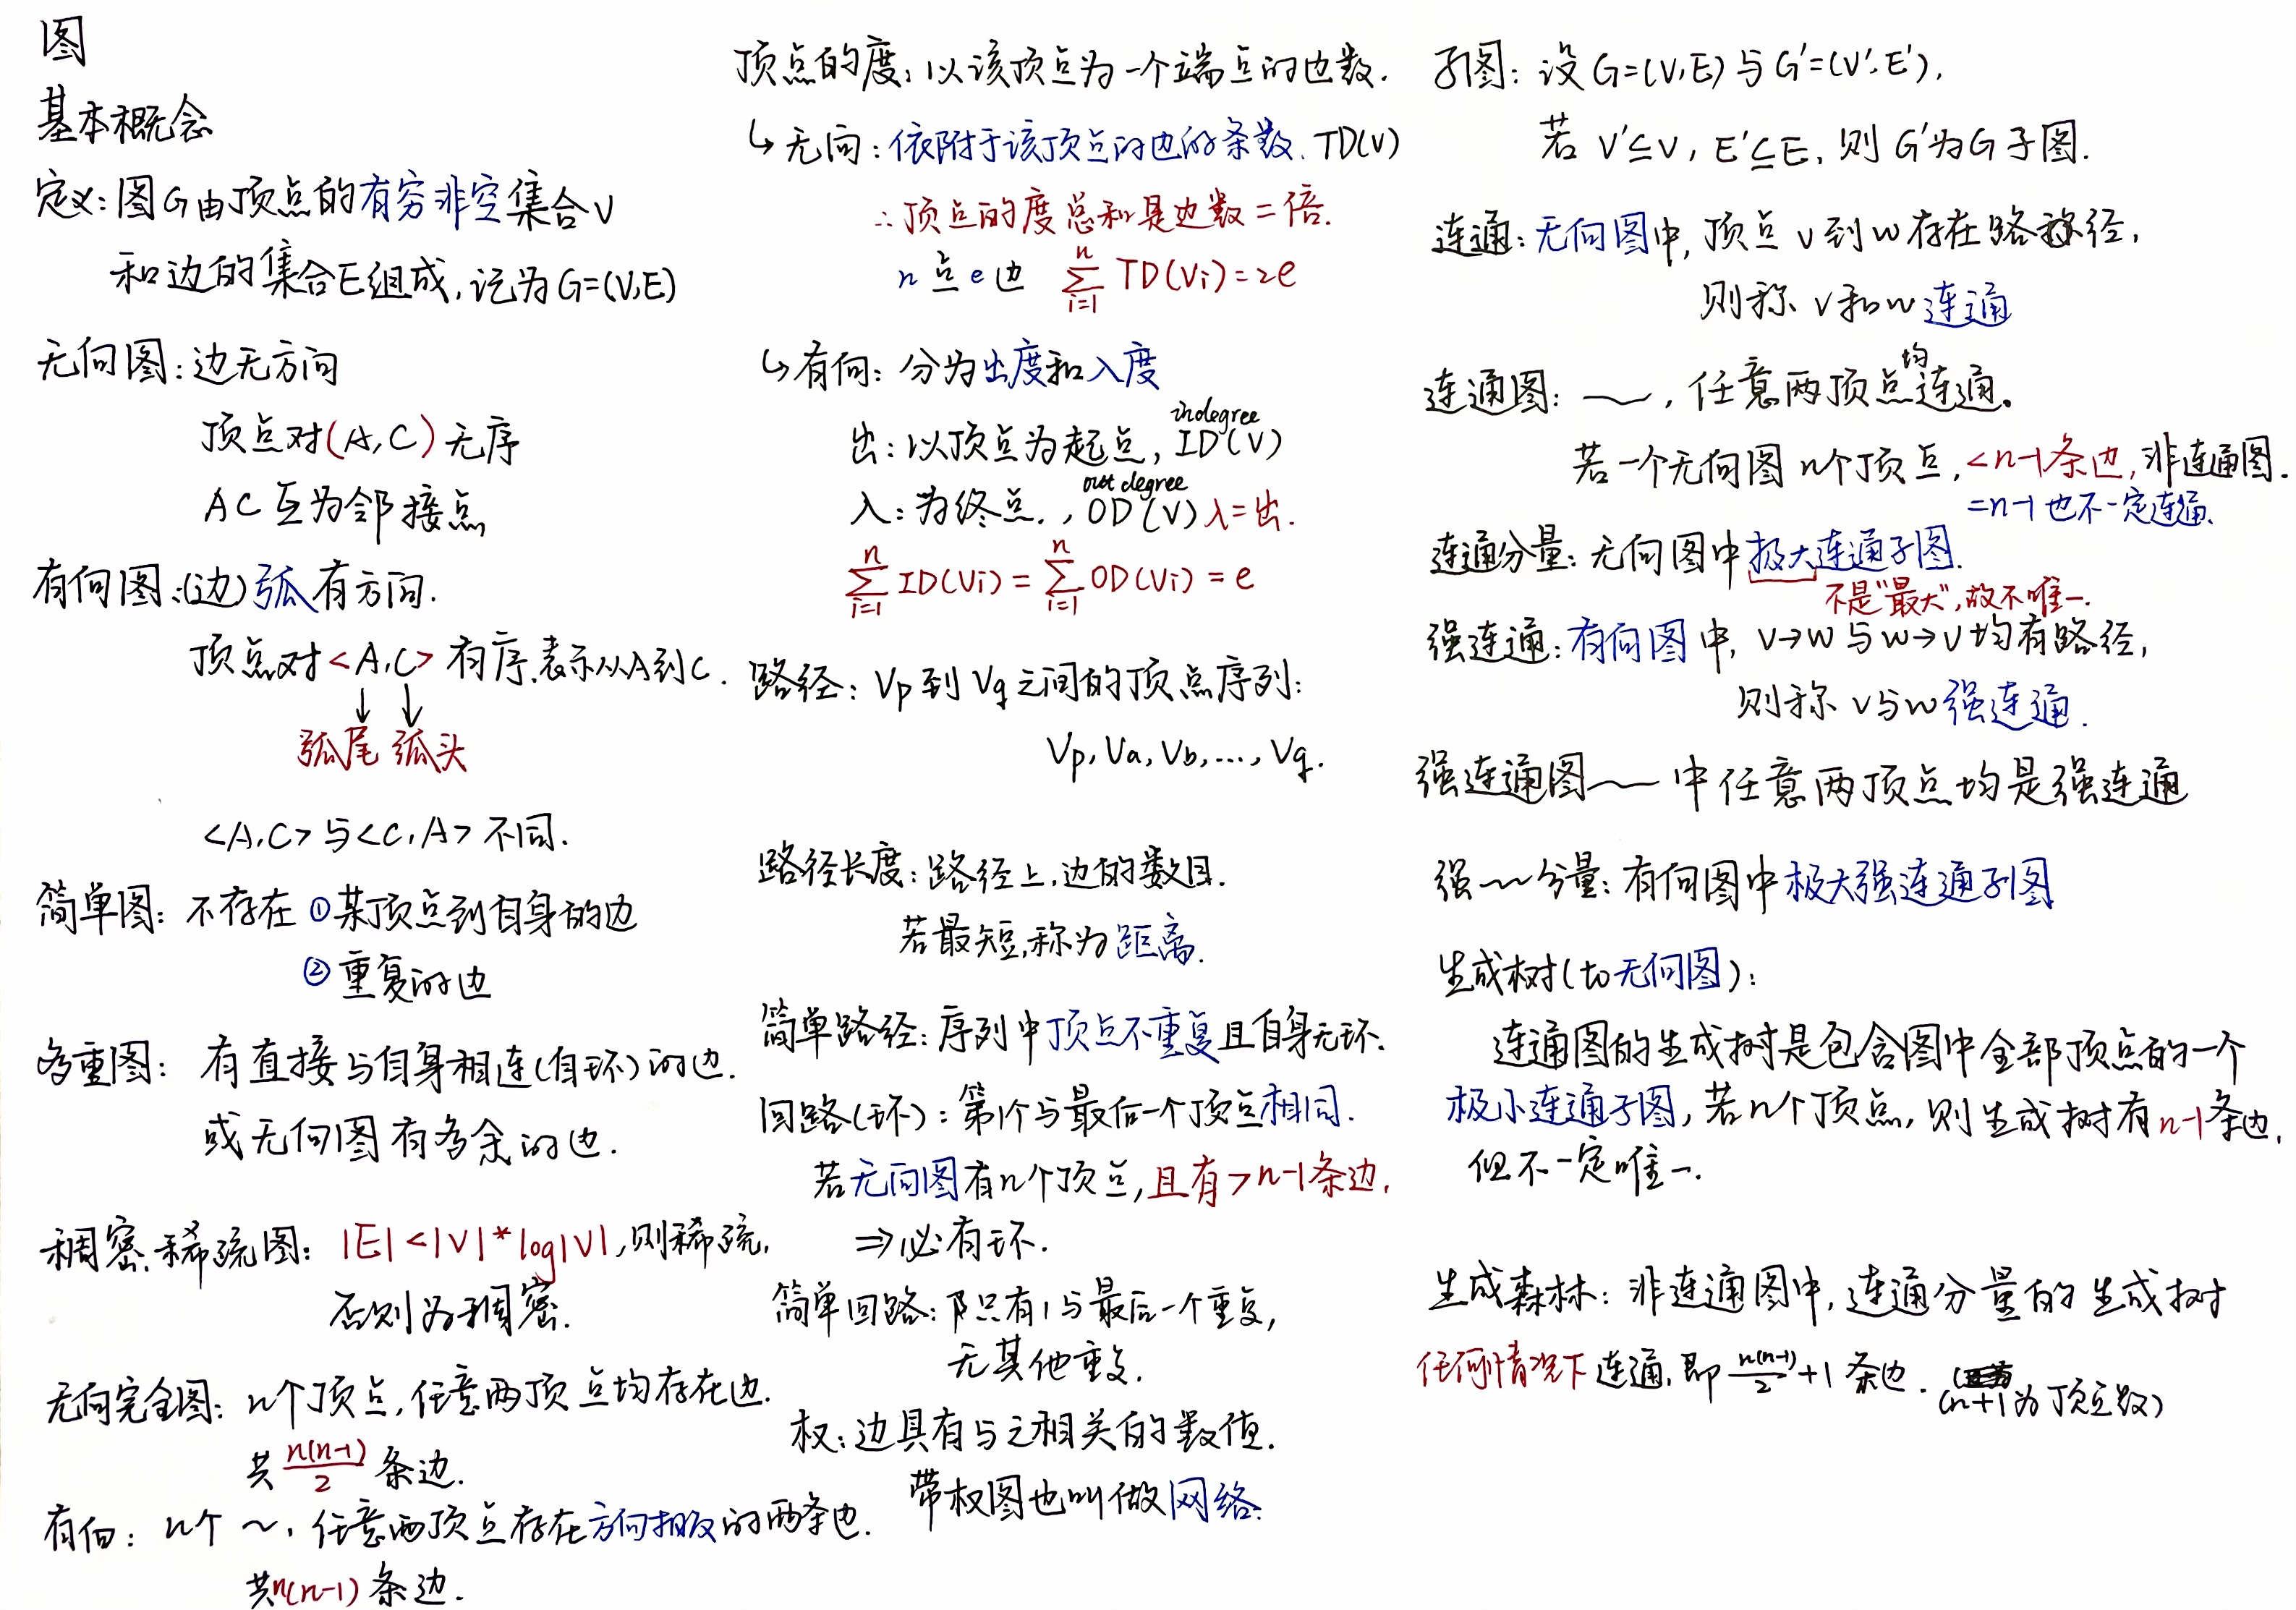 图
基本概念
定义：图G由顶点的有穷非空集合V
和边的集合E组成，记为G=(V,E)
无向图：边无方向
顶点对(A,C)无序
AC互为邻接点
有向图：(边)弧有方向.
顶点对<A,C>有序.表示从A到C.
↓ ↓
弧尾 弧头
<A,C>与<C,A>不同.
简单图：不存在①某顶点到自身的边
②重复的边
多重图：有直接与自身相连(自环)的边.
或无向图有多余的边.
稠密.稀疏图：|E|<|V|*log|V|,则稀疏,
否则为稠密.
无向完全图：n个顶点,任意两顶点均存在边.
共n(n-1)/2条边.
有向：n个～,任意两顶点存在方向相反的两条边.
共n(n-1)条边.
顶点的度：以该顶点为一个端点的边数.
↳无向：依附于该顶点的边的条数.TD(V)
∴顶点的度总和是边数二倍.
n点e边 n∑i=1 TD(Vi)=2e
↳有向：分为出度和入度
indegree
出：以顶点为起点,ID(V)
out degree
入：为终点.,OD(V)入=出.
n∑i=1 ID(Vi)=n∑i=1 OD(Vi)=e
路径：Vp到Vq之间的顶点序列：
Vp,Va,Vb,...,Vq.
路径长度：路径上,边的数目.
若最短,称为距离.
简单路径：序列中顶点不重复且自身无环.
回路(环)：第1个与最后一个顶点相同.
若无向图有n个顶点,且有>n-1条边,
⇒必有环.
简单回路：只有1与最后一个重复,
无其他重复.
权：边具有与之相关的数值.
带权图也叫做网络.
子图：设G=(V,E)与G'=(V',E'),
若V'⊆V,E'⊆E,则G'为G子图.
连通：无向图中,顶点v到w存在路径,
则称v和w连通
连通图：～,任意两顶点均连通。
若一个无向图n个顶点,<n-1条边,非连通图.
=n-1也不一定连通.
连通分量：无向图中极大连通子图.
不是"最大",故不唯一.
强连通：有向图中,V→W与W→V均有路径,
则称v与w强连通.
强连通图～中任意两顶点均是强连通
强～分量：有向图中极大强连通子图
生成树(to无向图)：
连通图的生成树是包含图中全部顶点的一个
极小连通子图,若n个顶点,则生成树有n-1条边,
但不一定唯一.
生成森林：非连通图中,连通分量的生成树
任何情况下连通,即n(n-1)/2+1条边.(n+1为顶点数)